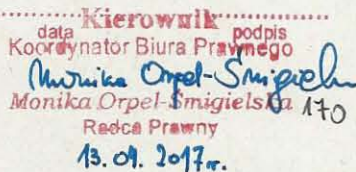 Kierownik
data podpis
Koordynator Biura Prawnego
Monika Orpel-Śmigielska
Monika Orpel-Śmigielska 170
Radca Prawny
13.09.2017r.